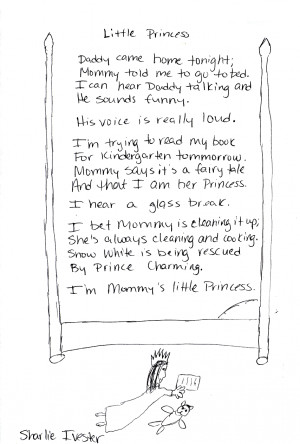 Little Princess
Daddy came home tonight;
Mommy told me to go to bed.
I can hear Daddy talking and
He sounds funny.
His voice is really loud.
I'm trying to read my book
For Kindergarten tommorrow.
Mommy says it's a fairy tale
And that I am her Princess.
I hear a glass break.
I bet Mommy is cleaning it up;
She's always cleaning and cooking.
Snow White is being rescued
By Prince Charming.
I'm Mommy's little Princess.
Sharlie Ivester